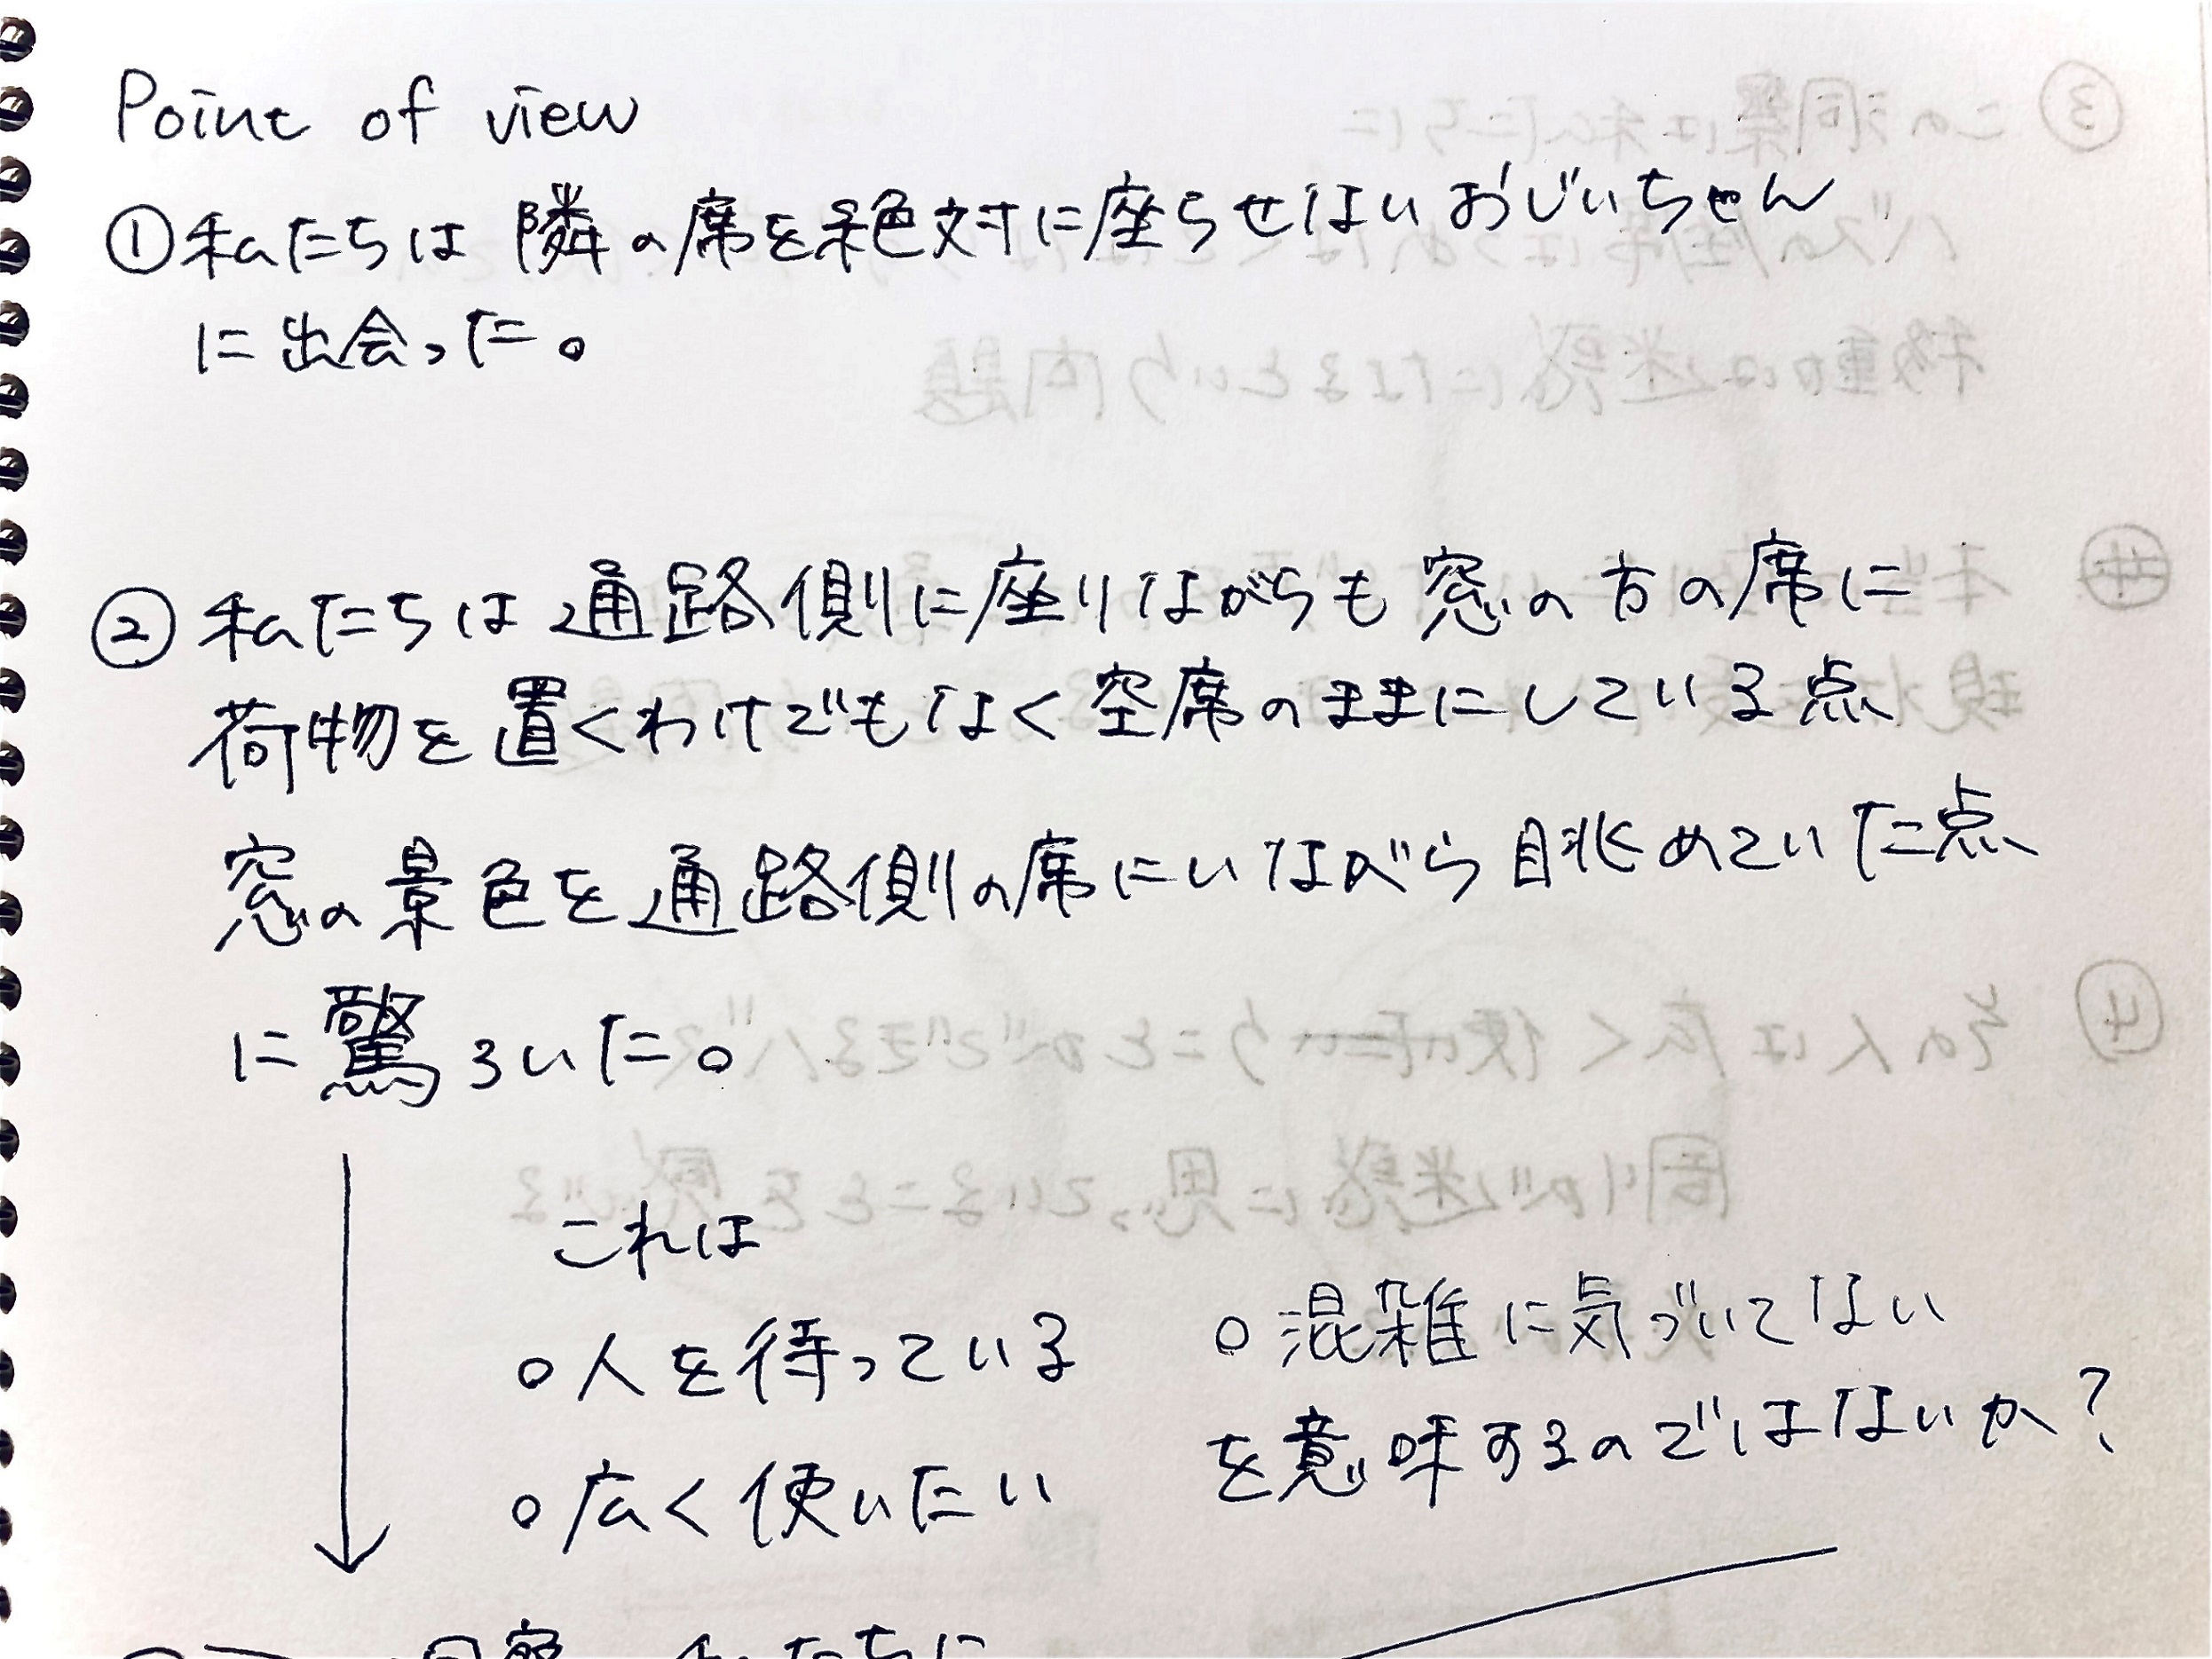 Point of view
①私たちは 隣の席を絶対に座らせないおじいちゃん
に出会った。
②私たちは通路側に座りながらも窓の方の席に
荷物を置くわけでもなく空席のままにしている点
窓の景色を通路側の席にいながら眺めていた点
に驚ろいた。
これは
○人を待っている
○広く使いたい
○混雑に気づいてない
を意味するのではないか?
洞察 私たちに